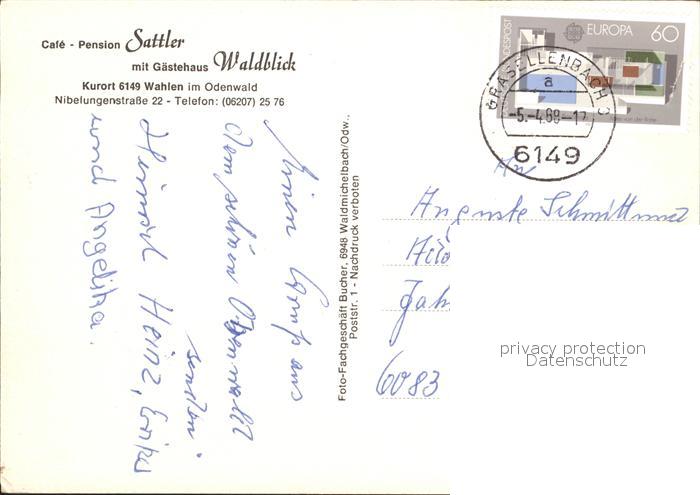 Café - Pension Sattler
mit Gästehaus Waldblick
Kurort 6149 Wahlen im Odenwald
Nibelungenstraße 22 - Telefon: (06207) 25 76
Einen Gruß aus
dem schönen Odenwald
senden
Heinz, Erika
und Angelika.
Foto-Fachgeschäft Bucher, 6948 Waldmichelbach/Odw.,
Poststr. 1 - Nachdruck verboten
BUNDESPOST
EUROPA 60
GRASELLENBACH 3
a
-5.-4.88-17
6149
An
Auguste Schmitt
6083
privacy protection
Datenschutz